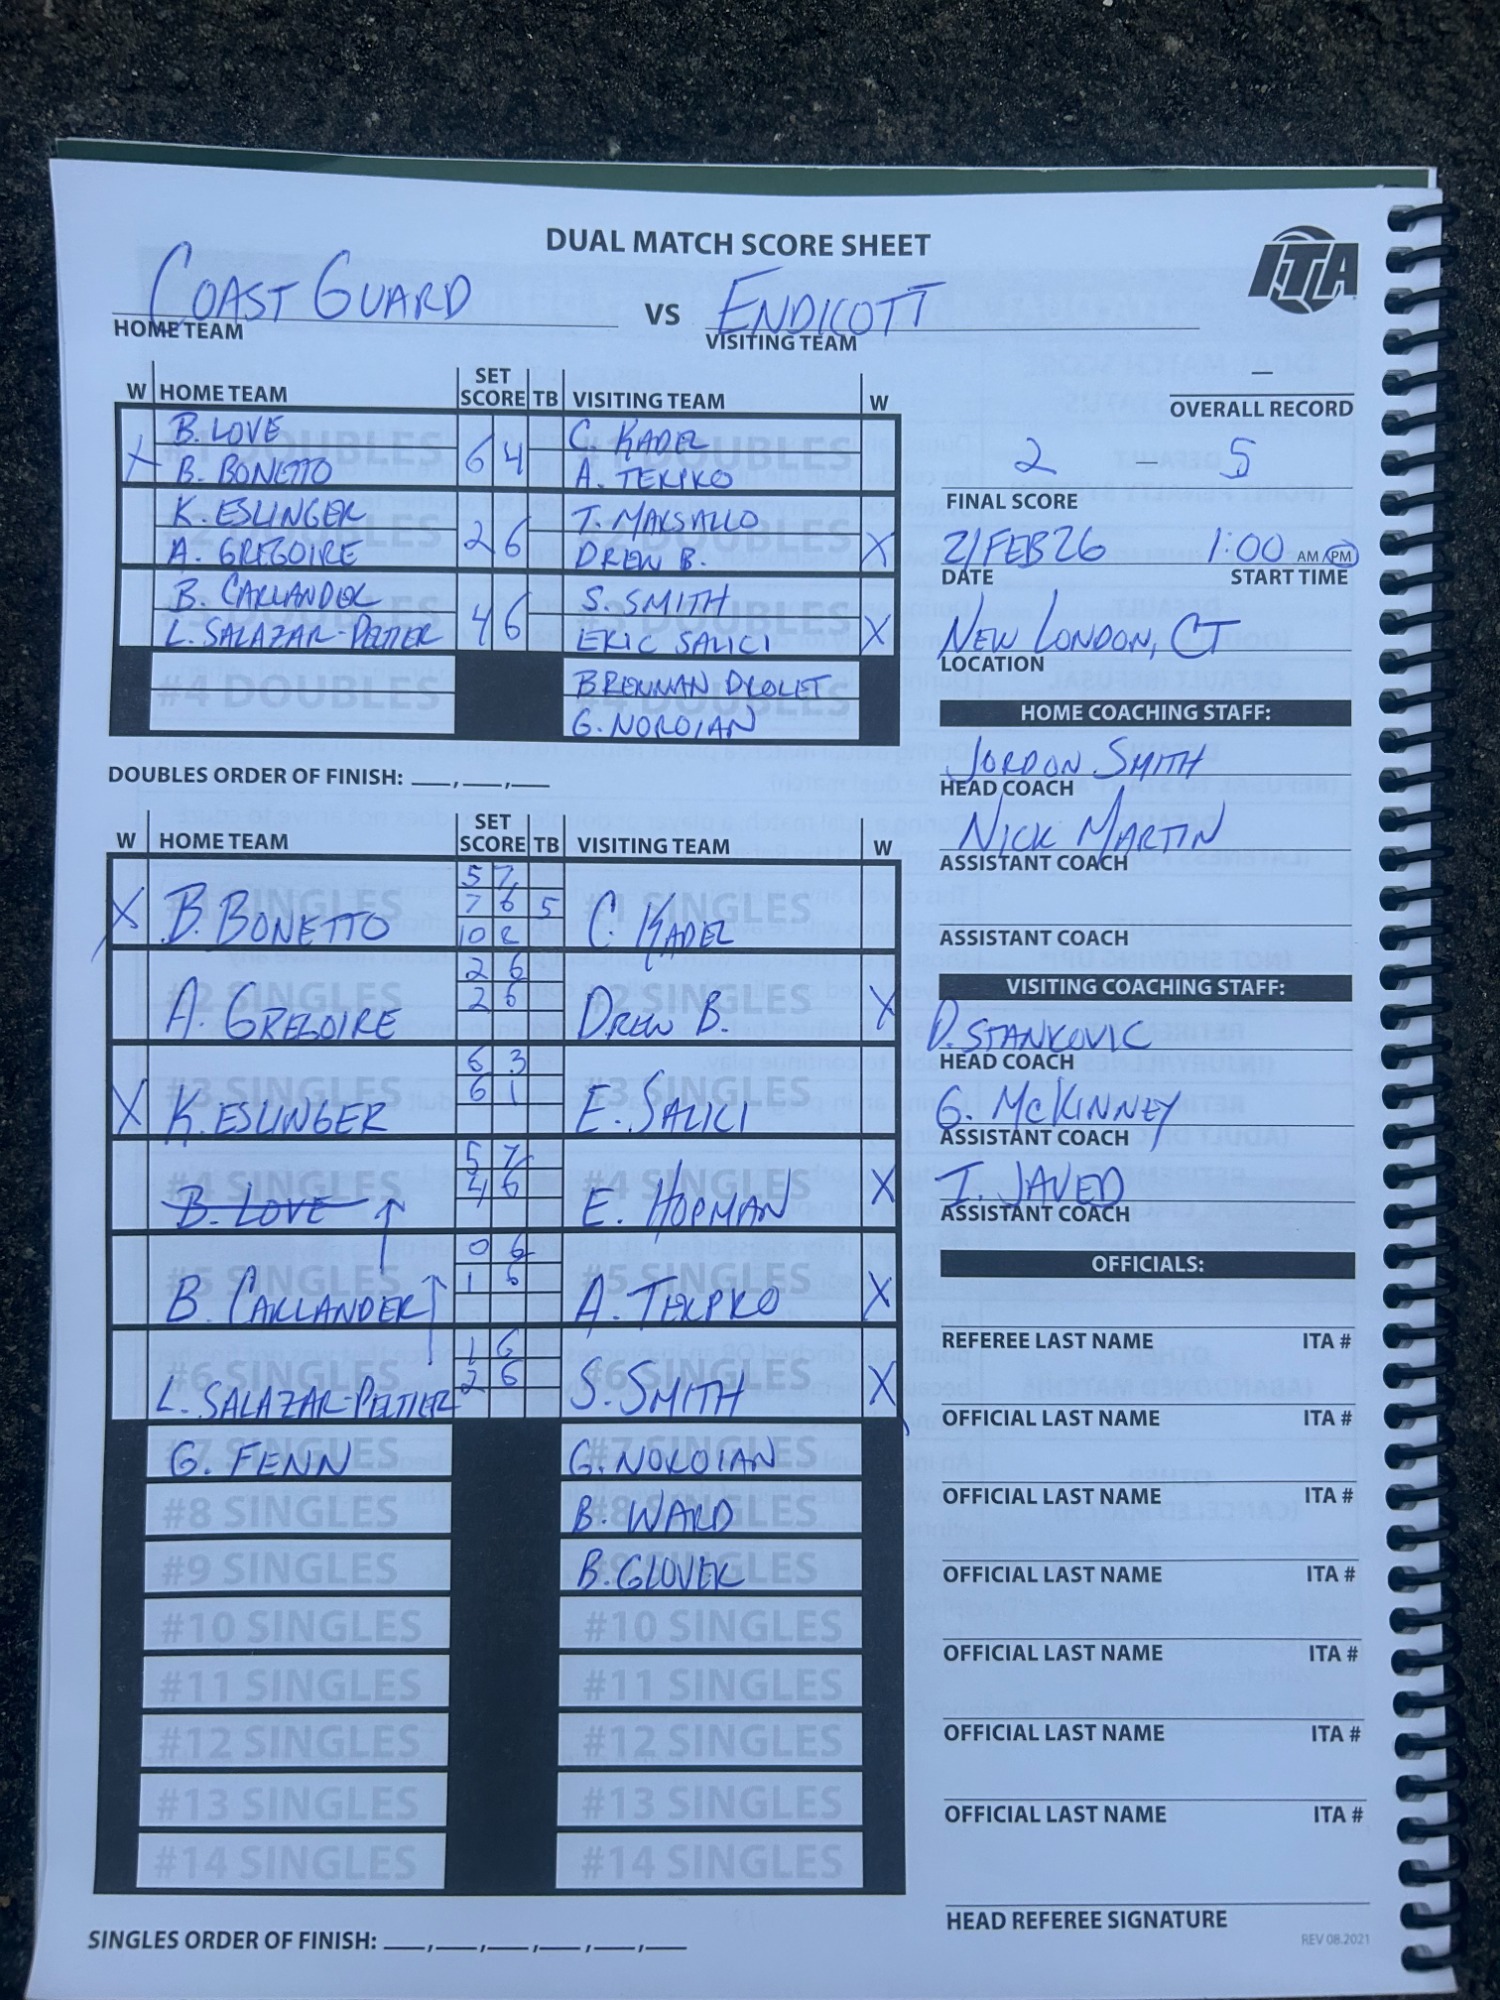 DUAL MATCH SCORE SHEET
ITA
COAST GUARD VS ENDICOTT
HOME TEAM VISITING TEAM
W HOME TEAM SET SCORE TB VISITING TEAM W
B. LOVE C. KADEL
X B. BONETTO 6 4 A. TEKPRO
#1 DOUBLES #1 DOUBLES
K. ESLINGER T. MAKSALLO
A. GREGOIRE 2 6 DREW B. X
#2 DOUBLES #2 DOUBLES
B. CALLANDER S. SMITH
L. SALAZAR-PELTIER 4 6 ERIC SALICI X
#3 DOUBLES #3 DOUBLES
#4 DOUBLES BRENNAN DROLET
G. NOROIAN #4 DOUBLES
DOUBLES ORDER OF FINISH: ___,___,___
W HOME TEAM SET SCORE TB VISITING TEAM W
5 7
7 6 5
X B. BONETTO 10 2 C KADEL
#1 SINGLES #1 SINGLES
2 6
2 6
A. GREGOIRE DREW B. X
#2 SINGLES #2 SINGLES
6 3
6 1
X K. ESLINGER E. SALICI
#3 SINGLES #3 SINGLES
5 7
4 6
B. LOVE ↑ E. HOPMAN X
#4 SINGLES #4 SINGLES
0 6
1 6
B. CALLANDER ↑ A. TEKPRO X
#5 SINGLES #5 SINGLES
1 6
2 6
L. SALAZAR-PELTIER S. SMITH X
#6 SINGLES #6 SINGLES
G. FENN G. NOROIAN
#7 SINGLES #7 SINGLES
#8 SINGLES B. WARD #8 SINGLES
#9 SINGLES B. GLOVER #9 SINGLES
#10 SINGLES #10 SINGLES
#11 SINGLES #11 SINGLES
#12 SINGLES #12 SINGLES
#13 SINGLES #13 SINGLES
#14 SINGLES #14 SINGLES
SINGLES ORDER OF FINISH: ___,___,___,___,___,___
—
OVERALL RECORD
2 — 5
FINAL SCORE
21 FEB 26 1:00 AM / PM
DATE START TIME
NEW LONDON, CT
LOCATION
HOME COACHING STAFF:
JORDON SMITH
HEAD COACH
NICK MARTIN
ASSISTANT COACH
ASSISTANT COACH
VISITING COACHING STAFF:
D. STANKOVIC
HEAD COACH
G. MCKINNEY
ASSISTANT COACH
I. JAVED
ASSISTANT COACH
OFFICIALS:
REFEREE LAST NAME ITA #
OFFICIAL LAST NAME ITA #
OFFICIAL LAST NAME ITA #
OFFICIAL LAST NAME ITA #
OFFICIAL LAST NAME ITA #
OFFICIAL LAST NAME ITA #
OFFICIAL LAST NAME ITA #
HEAD REFEREE SIGNATURE
REV 08.2021